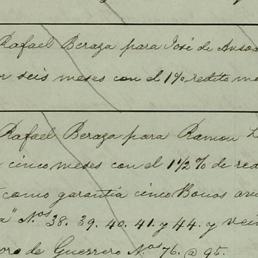 Rafael Beraza para José de
seis meses con el 1% redito
Rafael Beraza para Ramon
cinco meses con el 1½% de
como garantía cinco Bonos
Nos. 38. 39. 40. 41. y 44. y
de Guerrero Nos. 76. @ 95.